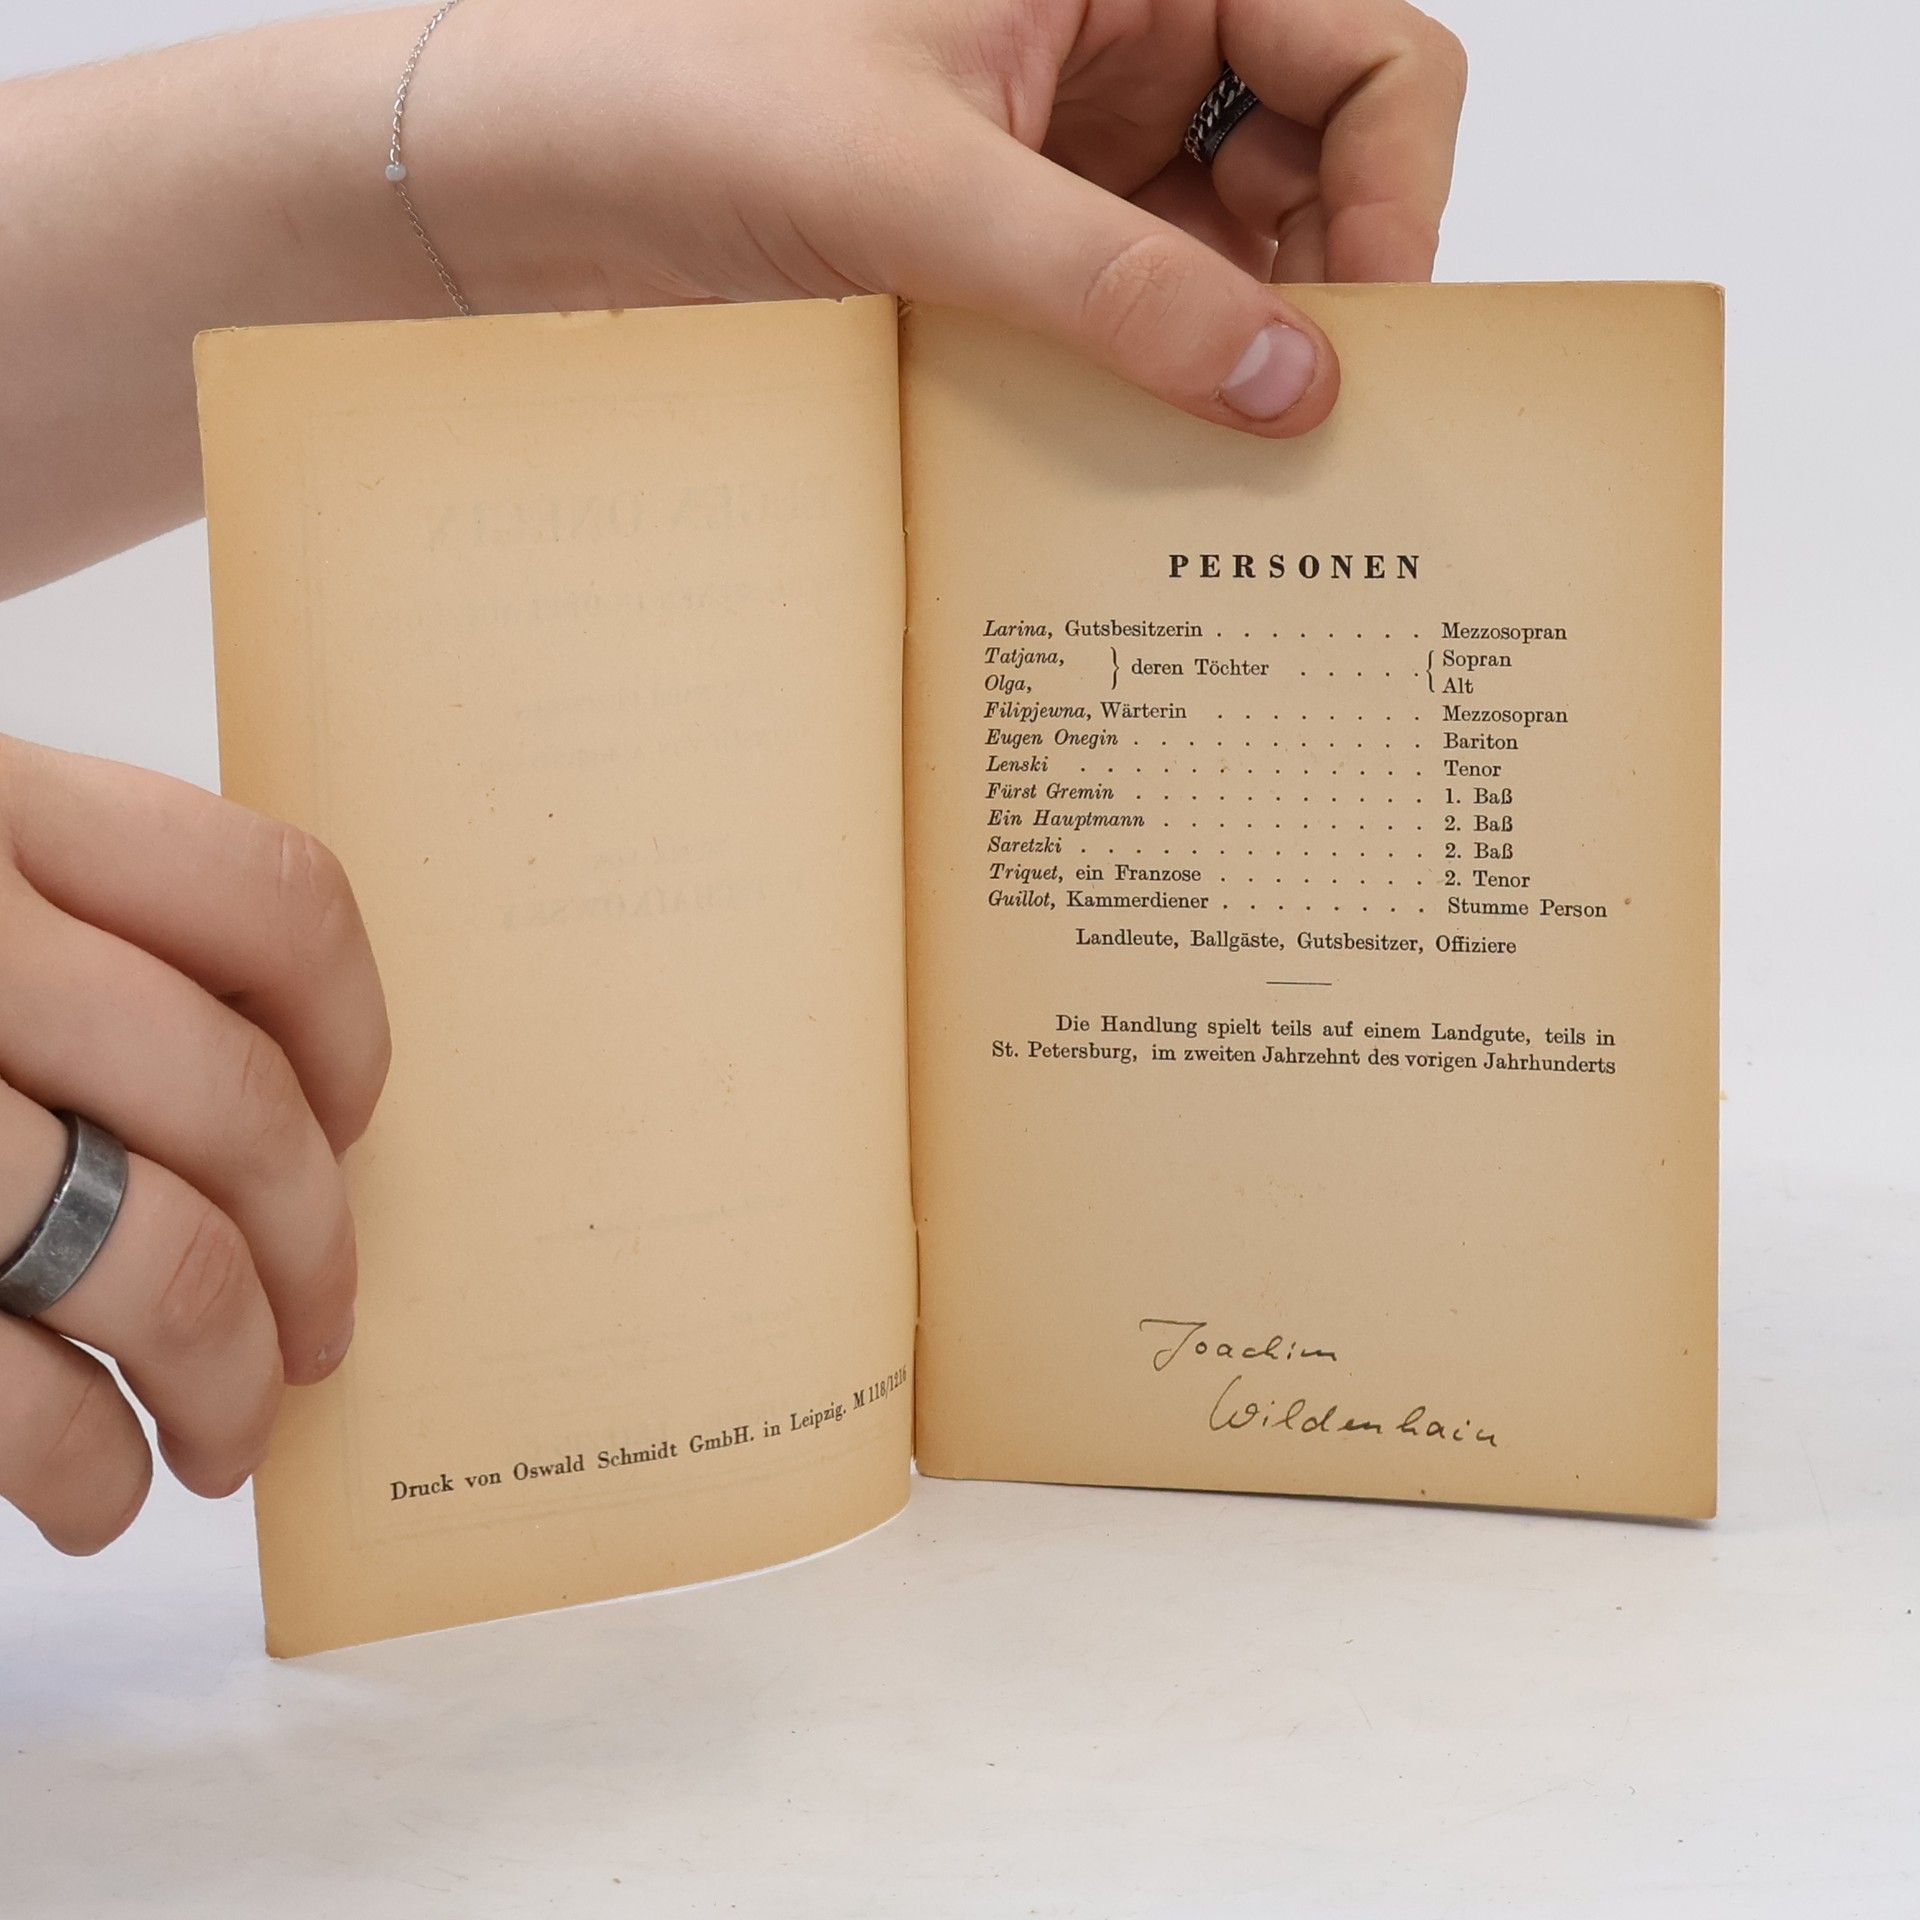 Druck von Oswald Schmidt GmbH. in Leipzig. M 118/1216
PERSONEN
Larina, Gutsbesitzerin . . . . . . . . Mezzosopran
Tatjana, } deren Töchter . . . . . { Sopran
Olga, Alt
Filipjewna, Wärterin . . . . . . . . Mezzosopran
Eugen Onegin . . . . . . . . . . . Bariton
Lenski . . . . . . . . . . . . . Tenor
Fürst Gremin . . . . . . . . . . . 1. Baß
Ein Hauptmann . . . . . . . . . . 2. Baß
Saretzki . . . . . . . . . . . . . 2. Baß
Triquet, ein Franzose . . . . . . . . 2. Tenor
Guillot, Kammerdiener . . . . . . . . Stumme Person
Landleute, Ballgäste, Gutsbesitzer, Offiziere
Die Handlung spielt teils auf einem Landgute, teils in
St. Petersburg, im zweiten Jahrzehnt des vorigen Jahrhunderts
Joachim
Wildenhain